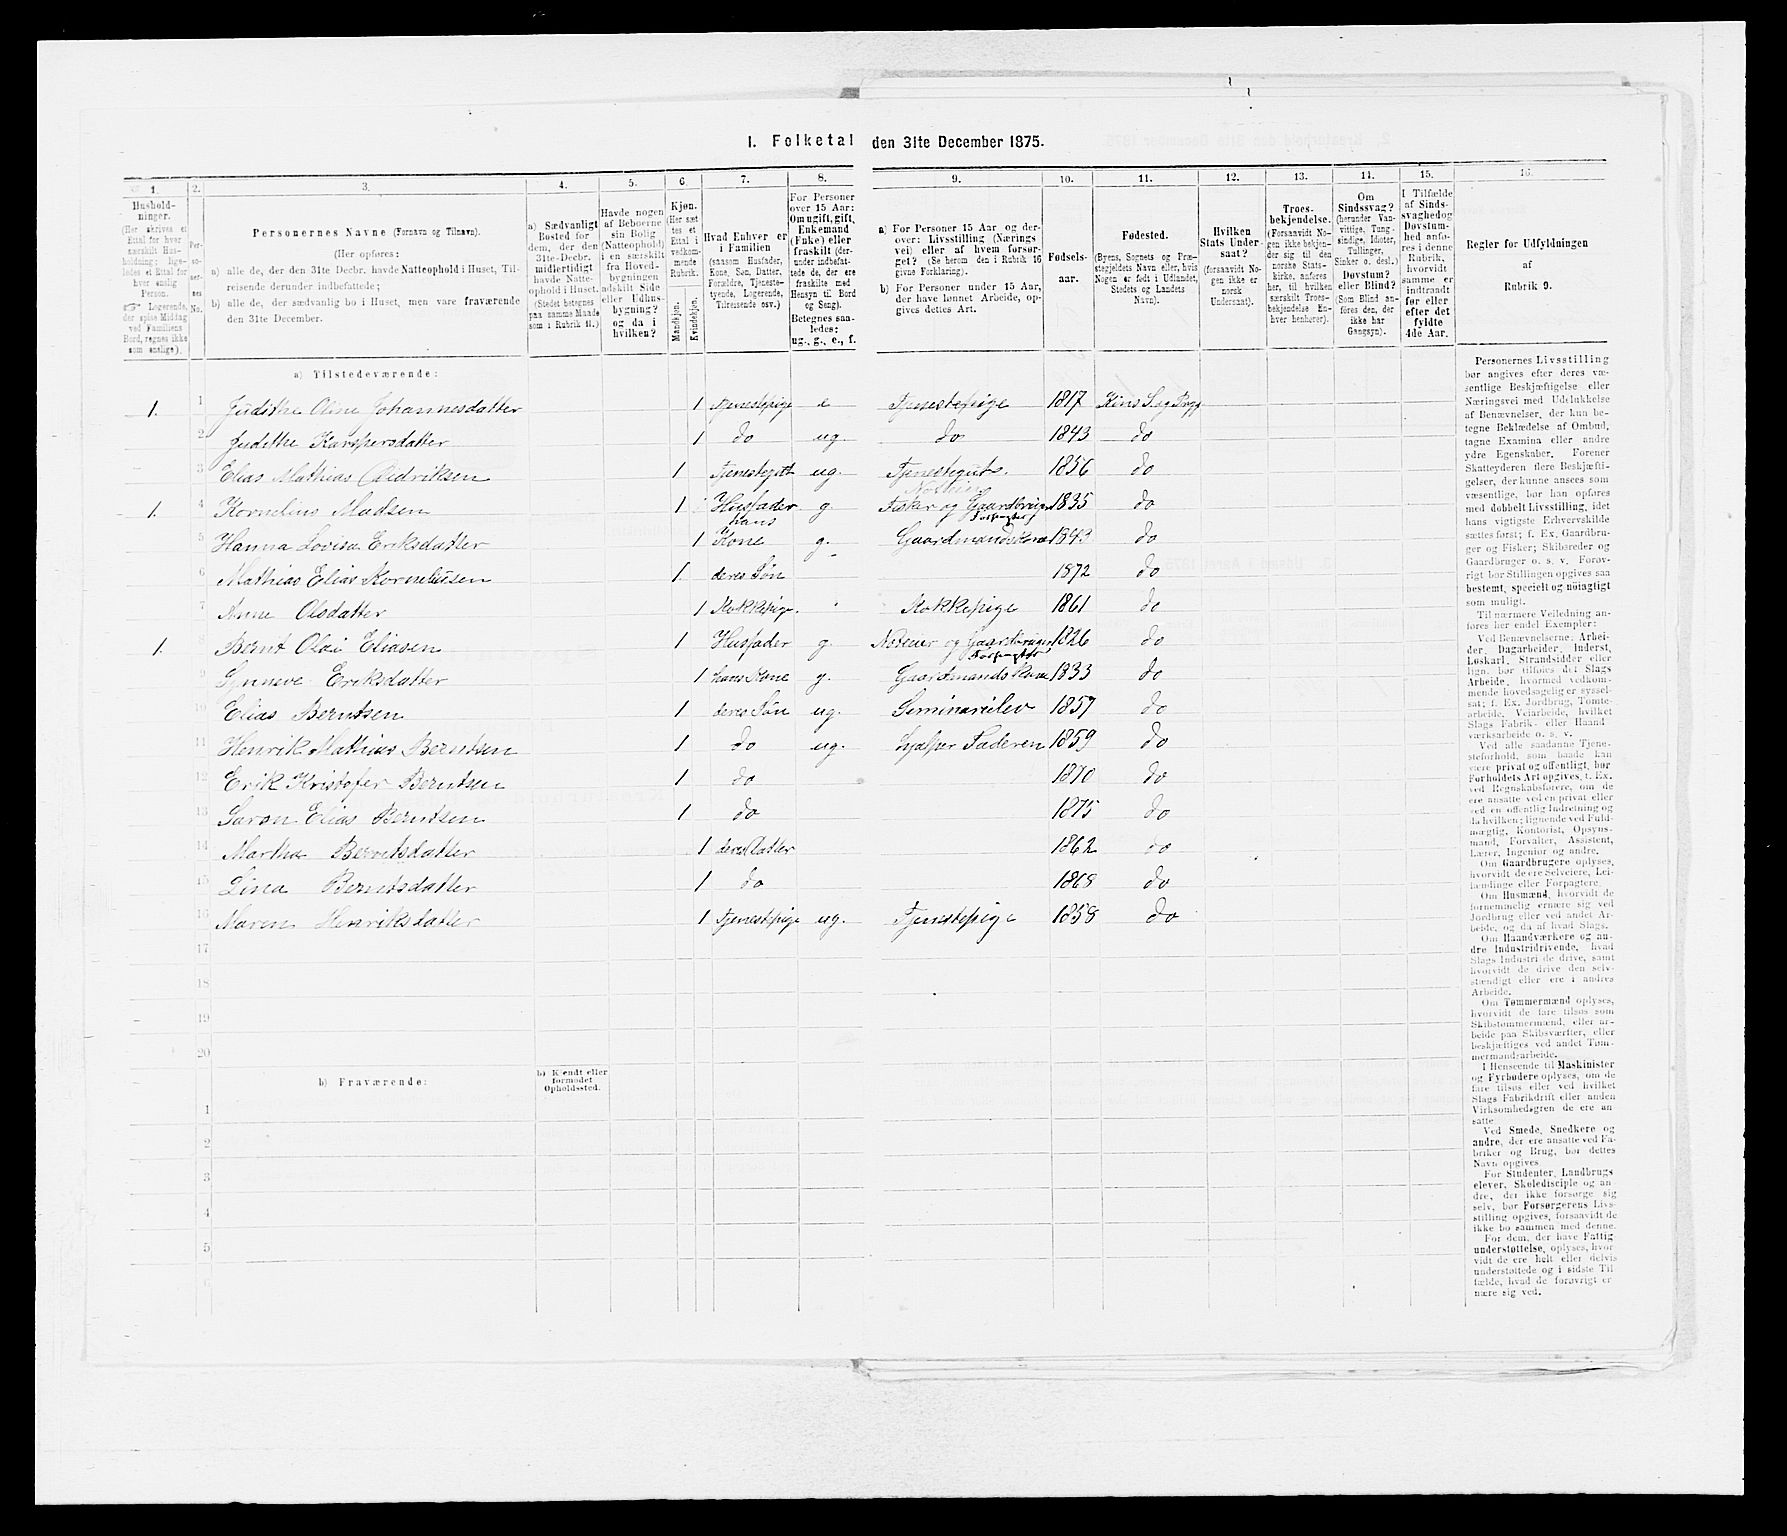 1. Folketal den 31te December 1875.
1. 2. 3. 4. 5. 6. 7. 8. 9. 10. 11. 12. 13. 14. 15. 16.
Hushold-
ninger.
(Her skrives et
Ettal for hver
særskilt Hus-
holdning; lige-
ledes et Ettal for
hver enslig
Person.
☞ Logerende,
der spise Middag
ved Familiens
Bord, regnes ikke
som enslige).
Per-
so-
ner-
nes
No.
Personernes Navne (Fornavn og Tilnavn).
(Her opføres:
a) alle de, der den 31te Decbr. havde Natteophold i Huset, Til-
reisende derunder indbefattede;
b) alle de, der sædvanlig bo i Huset, men vare fraværende
den 31te December.
a) Sædvanligt
Bosted for
dem, der den
31te-Decbr.
midlertidigt
havde Natte-
ophold i Huset.
(Stedet betegnes
paa samme Maade
som i Rubrik 11.)
Havde nogen
af Beboerne
sin Bolig
(Natteophold)
i en særskilt
fra Hoved-
bygningen
adskilt Side
eller Udhus-
bygning?
og da i
hvilken?
Kjøn.
(Her sæt
tes et
Ettal i
vedkom-
mende
Rubrik.
Mandkjøn.
Kvindekjøn.
Hvad Enhver er
i Familien
(saasom Husfader,
Kone, Søn, Datter,
Forældre, Tjeneste-
tyende, Logerende,
Tilreisende osv.)
For Personer
over 15 Aar:
Om ugift, gift,
Enkemand
(Enke) eller
fraskilt (der-
under indbefat-
tede de, der ere
fraskilte med
Hensyn til Bord
og Seng).
Betegnes saa-
ledes:
ug., g., e., f.
a) For Personer 15 Aar og der-
over: Livsstilling (Nærings
vei) eller af hvem forsør-
get? (Se herom den i Rubrik 16
givne Forklaring).
b) For Personer under 15 Aar,
der have lønnet Arbeide, op-
gives dettes Art.
Fødsels-
aar.
Fødested.
(Byens, Sognets og Præ-
stegjeldets Navn eller, hvis
Nogen er født i Udlandet,
Stedets og Landets
Navn).
Hvilken
Stats Under-
saat?
(forsaavidt No-
gen ikke er
norsk
Undersaat).
Troes-
bekjendelse.
(Forsaavidt No-
gen ikke bekjen-
der sig til den
norske Stats-
kirke, anføres
her, til hvilken
særskilt Troes-
bekjendelse En-
hver henhører).
Om
Sindssvag?
(herunder Van-
vittige, Tung-
sindige, Idioter,
Tullinger,
Sinker o. desl.)
Døvstum?
eller Blind?
(Som Blind an-
føres den, der
ikke har
Gangsyn).
I Tilfælde
af Sinds-
svaghed og
Døvstum-
hed anfø-
res i denne
Rubrik,
hvorvidt
samme er
indtraadt
før eller
efter det
fyldte
4de Aar.
Regler for Udfyldningen
af
Rubrik 9.
a) Tilstedeværende:
1. 1 Judithe Oline Johannesdatter 1 Tjenestepige e Tjenestepige 1817 Kins S. og Prgj
2 Judithe Karspersdatter 1 do ug. do 1843 do
3 Elias Mathias Aldriksen 1 Tjenestegut ug. Tjenestegut 1856 do
1. 4 Kornelius Madsen 1 Husfader g. Fisker og Gaardbruger 1835 do
5 Hanna Lovisa Eriksdatter 1 hans Kone g. Gaardmandskone 1843 do
6 Mathias Elias Korneliusen 1 deres Søn 1872 do
7 Anne Olsdatter 1 Kokkepige. Kokkepige 1861 do
1. Bernt Olai Eliasen 1 Husfader g. Noteier og Gaardbruger 1826 do
9 Synneve Eriksdatter 1 hans Kone g. Gaardmandskone 1833 do
10 Elias Berntsen 1 deres Søn ug. Seminarielev 1857 do
11 Henrik Mathias Berntsen 1 do ug. hjælper Faderen 1859 do
12 Erik Kristofer Berntsen 1 do 1870 do
13 Saron Elias Berntsen 1 do 1875 do
14 Martha Berntsdatter 1 deres Datter 1862 do
15 Lina Berntsdatter 1 do 1868 do
16 Maren Henriksdatter 1 Tjenestepige ug. Tjenestepige 1858 do
17
18
19
20
b) Fraværende:
b) Kjendt eller
formodet
Opholdssted.
1
2
3
4
5
6
Personernes Livsstilling
bør angives efter deres væ-
sentlige Beskjæftigelse eller
Næringsvei med Udelukkelse
af Benævnelser, der kun be-
tegne Beklædelse af Ombud,
tagne Examina eller andre
ydre Egenskaber. Forener
Skatteyderen flere Beskjæfti-
gelser, der kunne ansees som
væsentlige, bør han opføres
med dobbelt Livsstilling, idet
hans vigtigste Erhvervskilde
sættes først; f. Ex. Gaardbru-
ger og Fisker; Skibsreder og
Gaardbruger o. s. v. Forøv-
rigt bør Stillingen opgives saa
bestemt, specielt og nøiagtigt
som muligt.
Til nærmere Veiledning an-
føres her endel Exempler:
Ved Benævnelserne: Arbei-
der, Dagarbeider, Inderst,
Løskarl, Strandsidder eller
lign. bør tilføies det Slags
Arbeide, hvormed vedkom-
mende hovedsagelig er syssel-
sat; f. Ex. Jordbrug, Tomte-
arbeide, Veiarbeide, hvilket
Slags Fabrik- eller Haand-
værksarbeide o. s. v.
Ved alle saadanne Tjene-
steforhold, som baade kan
være privat og offentligt, bør
Forholdets Art opgives, t. Ex.
ved Regnskabsførere, om de
ere ansatte ved en privat eller
ved en offentlig Indretning og
da hvilken; lignende ved Fuld-
mægtig, Kontorist, Opsyns-
mand, Forvalter, Assistent,
Lærer, Ingeniør og andre.
Om Gaardbrugere oplyses,
hvorvidt de ere Selveiere, Lei-
lændinge eller Forpagtere.
Om Husmænd, hvorvidt de
fornemmelig ernære sig ved
Jordbrug eller ved andet Ar-
beide, og da af hvad Slags.
Om Haandværkere og an-
dre Industridrivende, hvad
Slags Industri de drive, samt
hvorvidt de drive den selv-
stændigt eller ere i andres
Arbeide.
Om Tømmermænd oplyses,
hvorvidt de fare tilsøs som
Skibstømmermænd, eller ar-
beide paa Skibsværfter, eller
beskjæftiges ved andet Tøm-
mermandsarbeide.
I Henseende til Maskinister
og Fyrbødere oplyses, om de
fare tilsøs eller ved hvilket
Slags Fabrikdrift eller anden
Virksomhedsgren de ere an-
satte
Ved Smede, Snedkere og
andre, der ere ansatte ved Fa-
briker og Brug, bør dettes
Navn opgives
For Studenter, Landbrugs
elever, Skoledisciple og an
dre, der ikke forsørge sig
selv, bør Forsørgerens Livs-
stilling opgives, forsaavidt de
ikke bo sammen med denne.
For dem, der have Fattig
understøttelse, oplyses, hvor
vidt de ere helt eller delvis
understøttede og i sidste Til
fælde, hvad de forøvrigt er
nære sig ved.